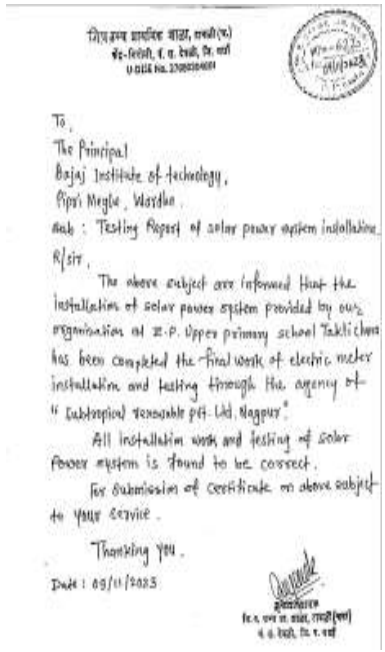 जि.प. उच्च प्राथमिक शाळा, टाकळी(च.)
केंद्र-गिरोली, पं. स. देवळी, जि. वर्धा
U-DISE No.
To,
The Principal
Bajaj Institute of technology,
Pipri Meghe, Wardha.
Sub : Testing Report of solar power system installation.
R/sir,
The above subject are informed that the
installation of solar power system provided by our
organisation at Z.P. Upper primary school Takli chana
has been completed the final work of electric meter
installation and testing through the agency of
" Subtropical renewable pvt. Ltd. Nagpur."
All installation work and testing of solar
Power system is found to be correct.
For Submission of Certificate on above subject
to your service.
Thanking you.
Date : 09/11/2023
मुख्याध्यापक
जि.प. उच्च प्रा. शाळा, टाकळी(चना)
पं. स. देवळी, जि. प. वर्धा